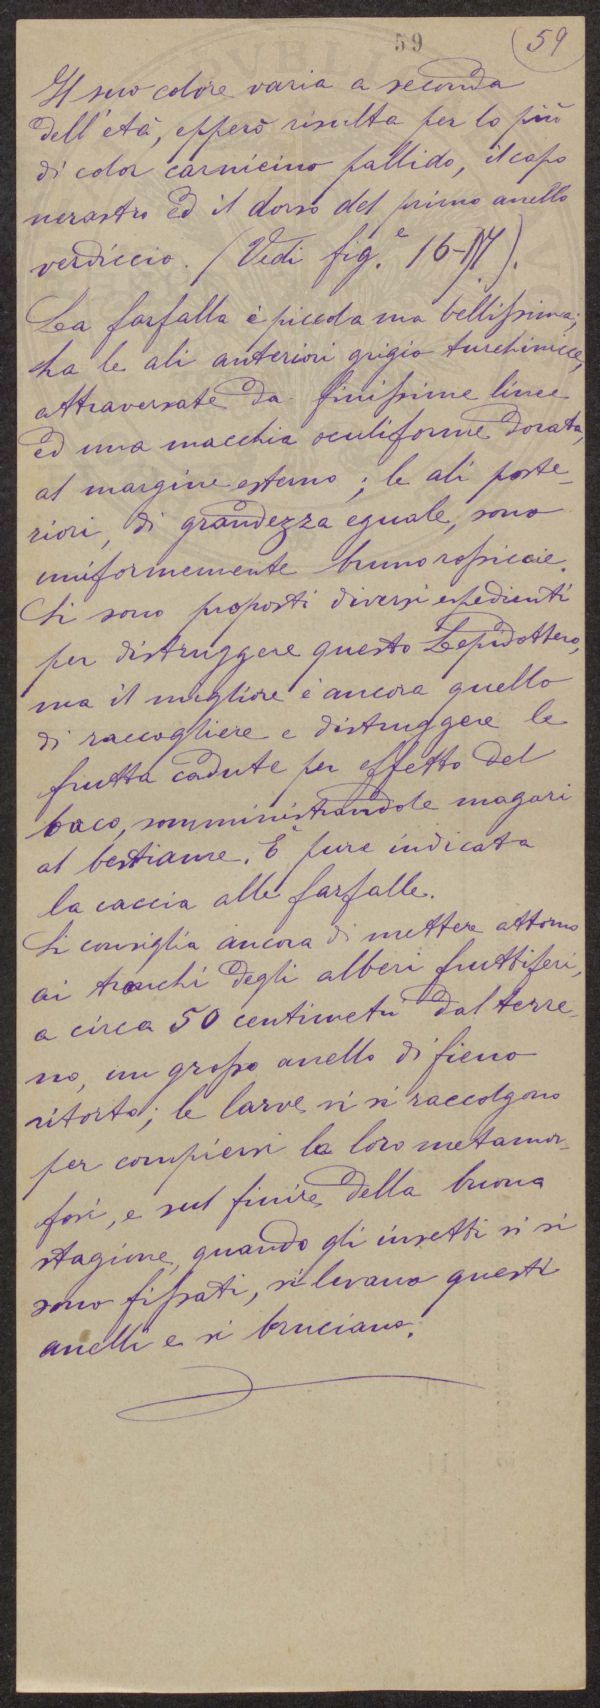 59
59
Il suo colore varia a seconda
dell'età, epperò risulta per lo più
di color carnicino pallido, il capo
nerastro ed il dorso del primo anello
verdiccio. (Vedi fig.e 16-17).
La farfalla è piccola ma bellissima;
ha le ali anteriori grigio turchinicce,
attraversate da finissime linee
ed una macchia oculiforme dorata,
al margine esterno; le ali poste-
riori, di grandezza eguale, sono
uniformemente bruno rossiccie.
Si sono proposti diversi espedienti
per distruggere questo Lepidottero,
ma il migliore è ancora quello
di raccogliere e distruggere le
frutta cadute per effetto del
baco, somministrandole magari
al bestiame. È pure indicata
la caccia alle farfalle.
Si consiglia ancora di mettere attorno
ai tronchi degli alberi fruttiferi,
a circa 50 centimetri dal terre-
no, un grosso anello di fieno
ritorto; le larve vi si raccolgono
per compiervi la loro metamor-
fosi, e sul finire della buona
stagione, quando gli insetti vi si
sono fissati, si levano questi
anelli e si bruciano.